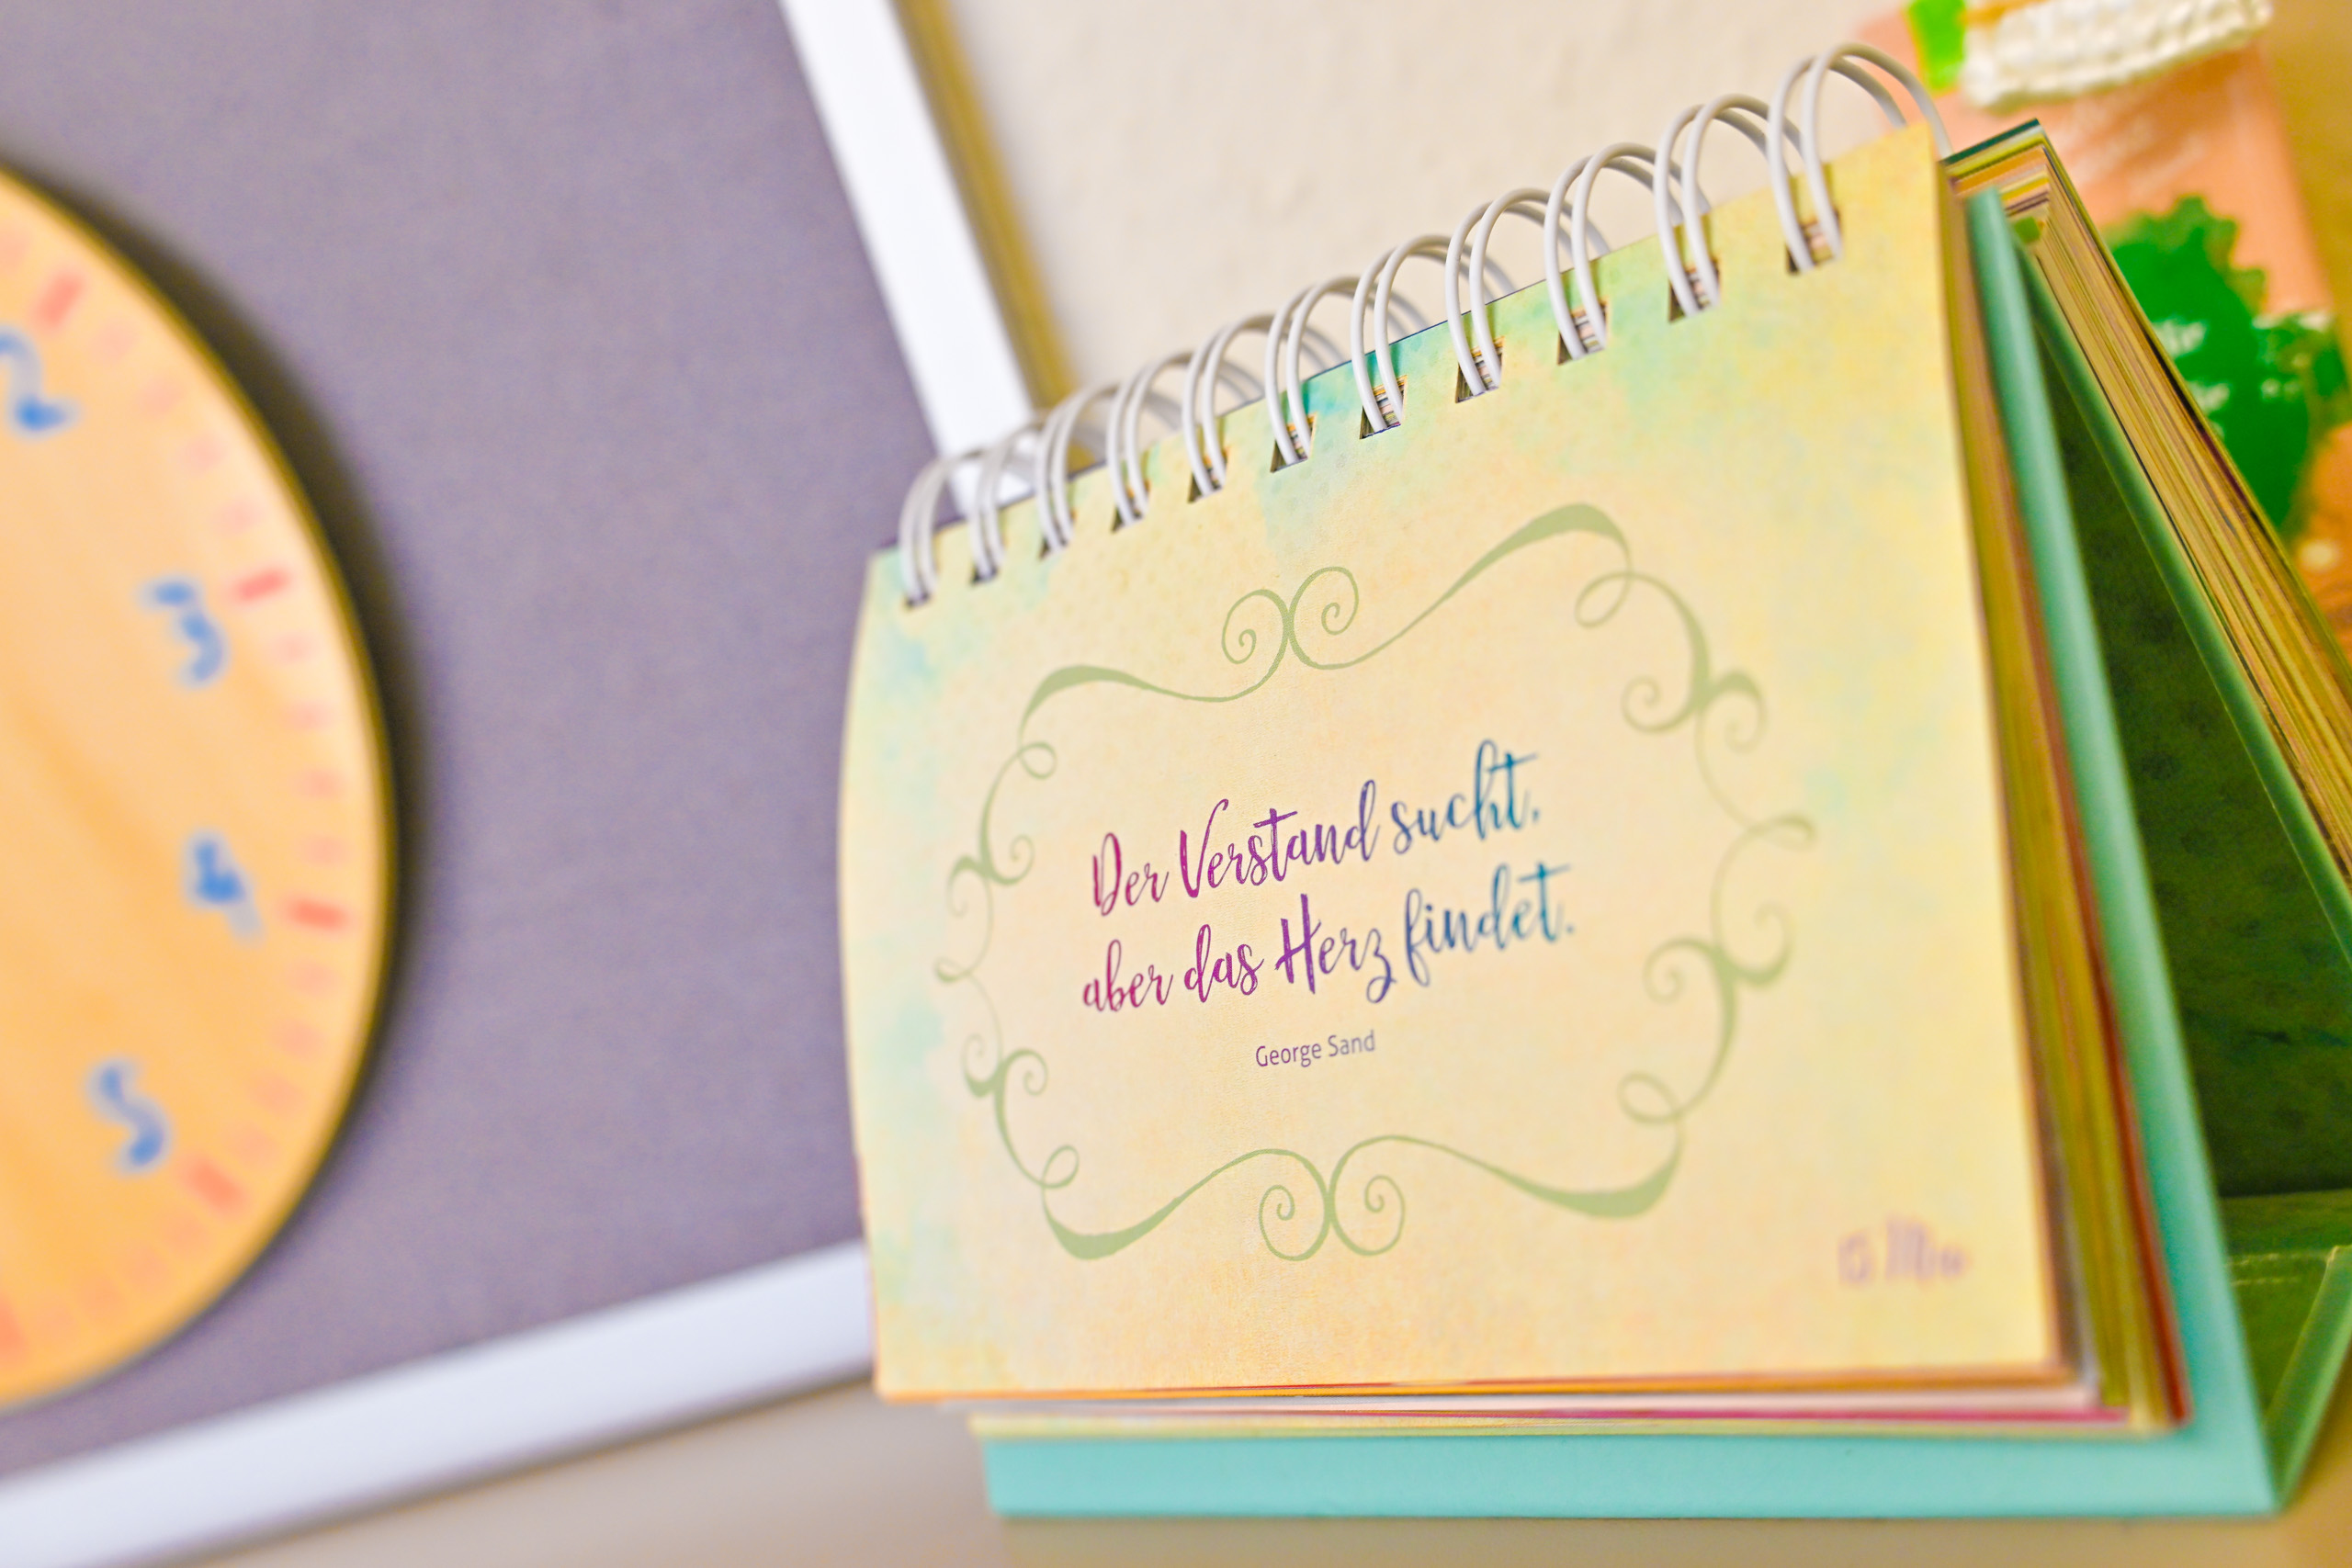 2
3
4
5
Der Verstand sucht,
aber das Herz findet.
George Sand